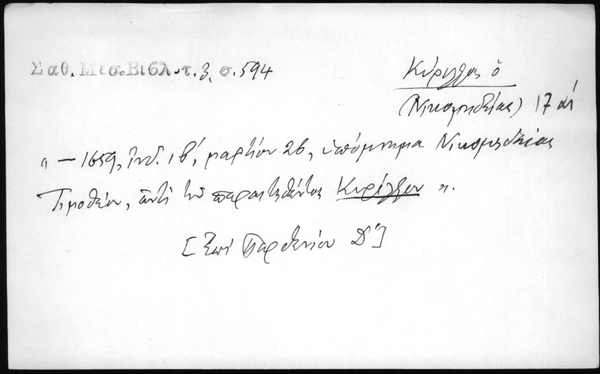 Σαθ. Μεσ. Βιβλ. τ. 3, σ. 594
Κύριλλος ὁ
(Νικομηδείας) 17 αἰ
" — 1659, ἰνδ. ιβ', μαρτίου 26, ὑπόμνημα Νικομηδείας
Τιμοθέου, ἀντὶ τοῦ παραιτηθέντος Κυρίλλου ".
[ἐπὶ Παρθενίου Δ']